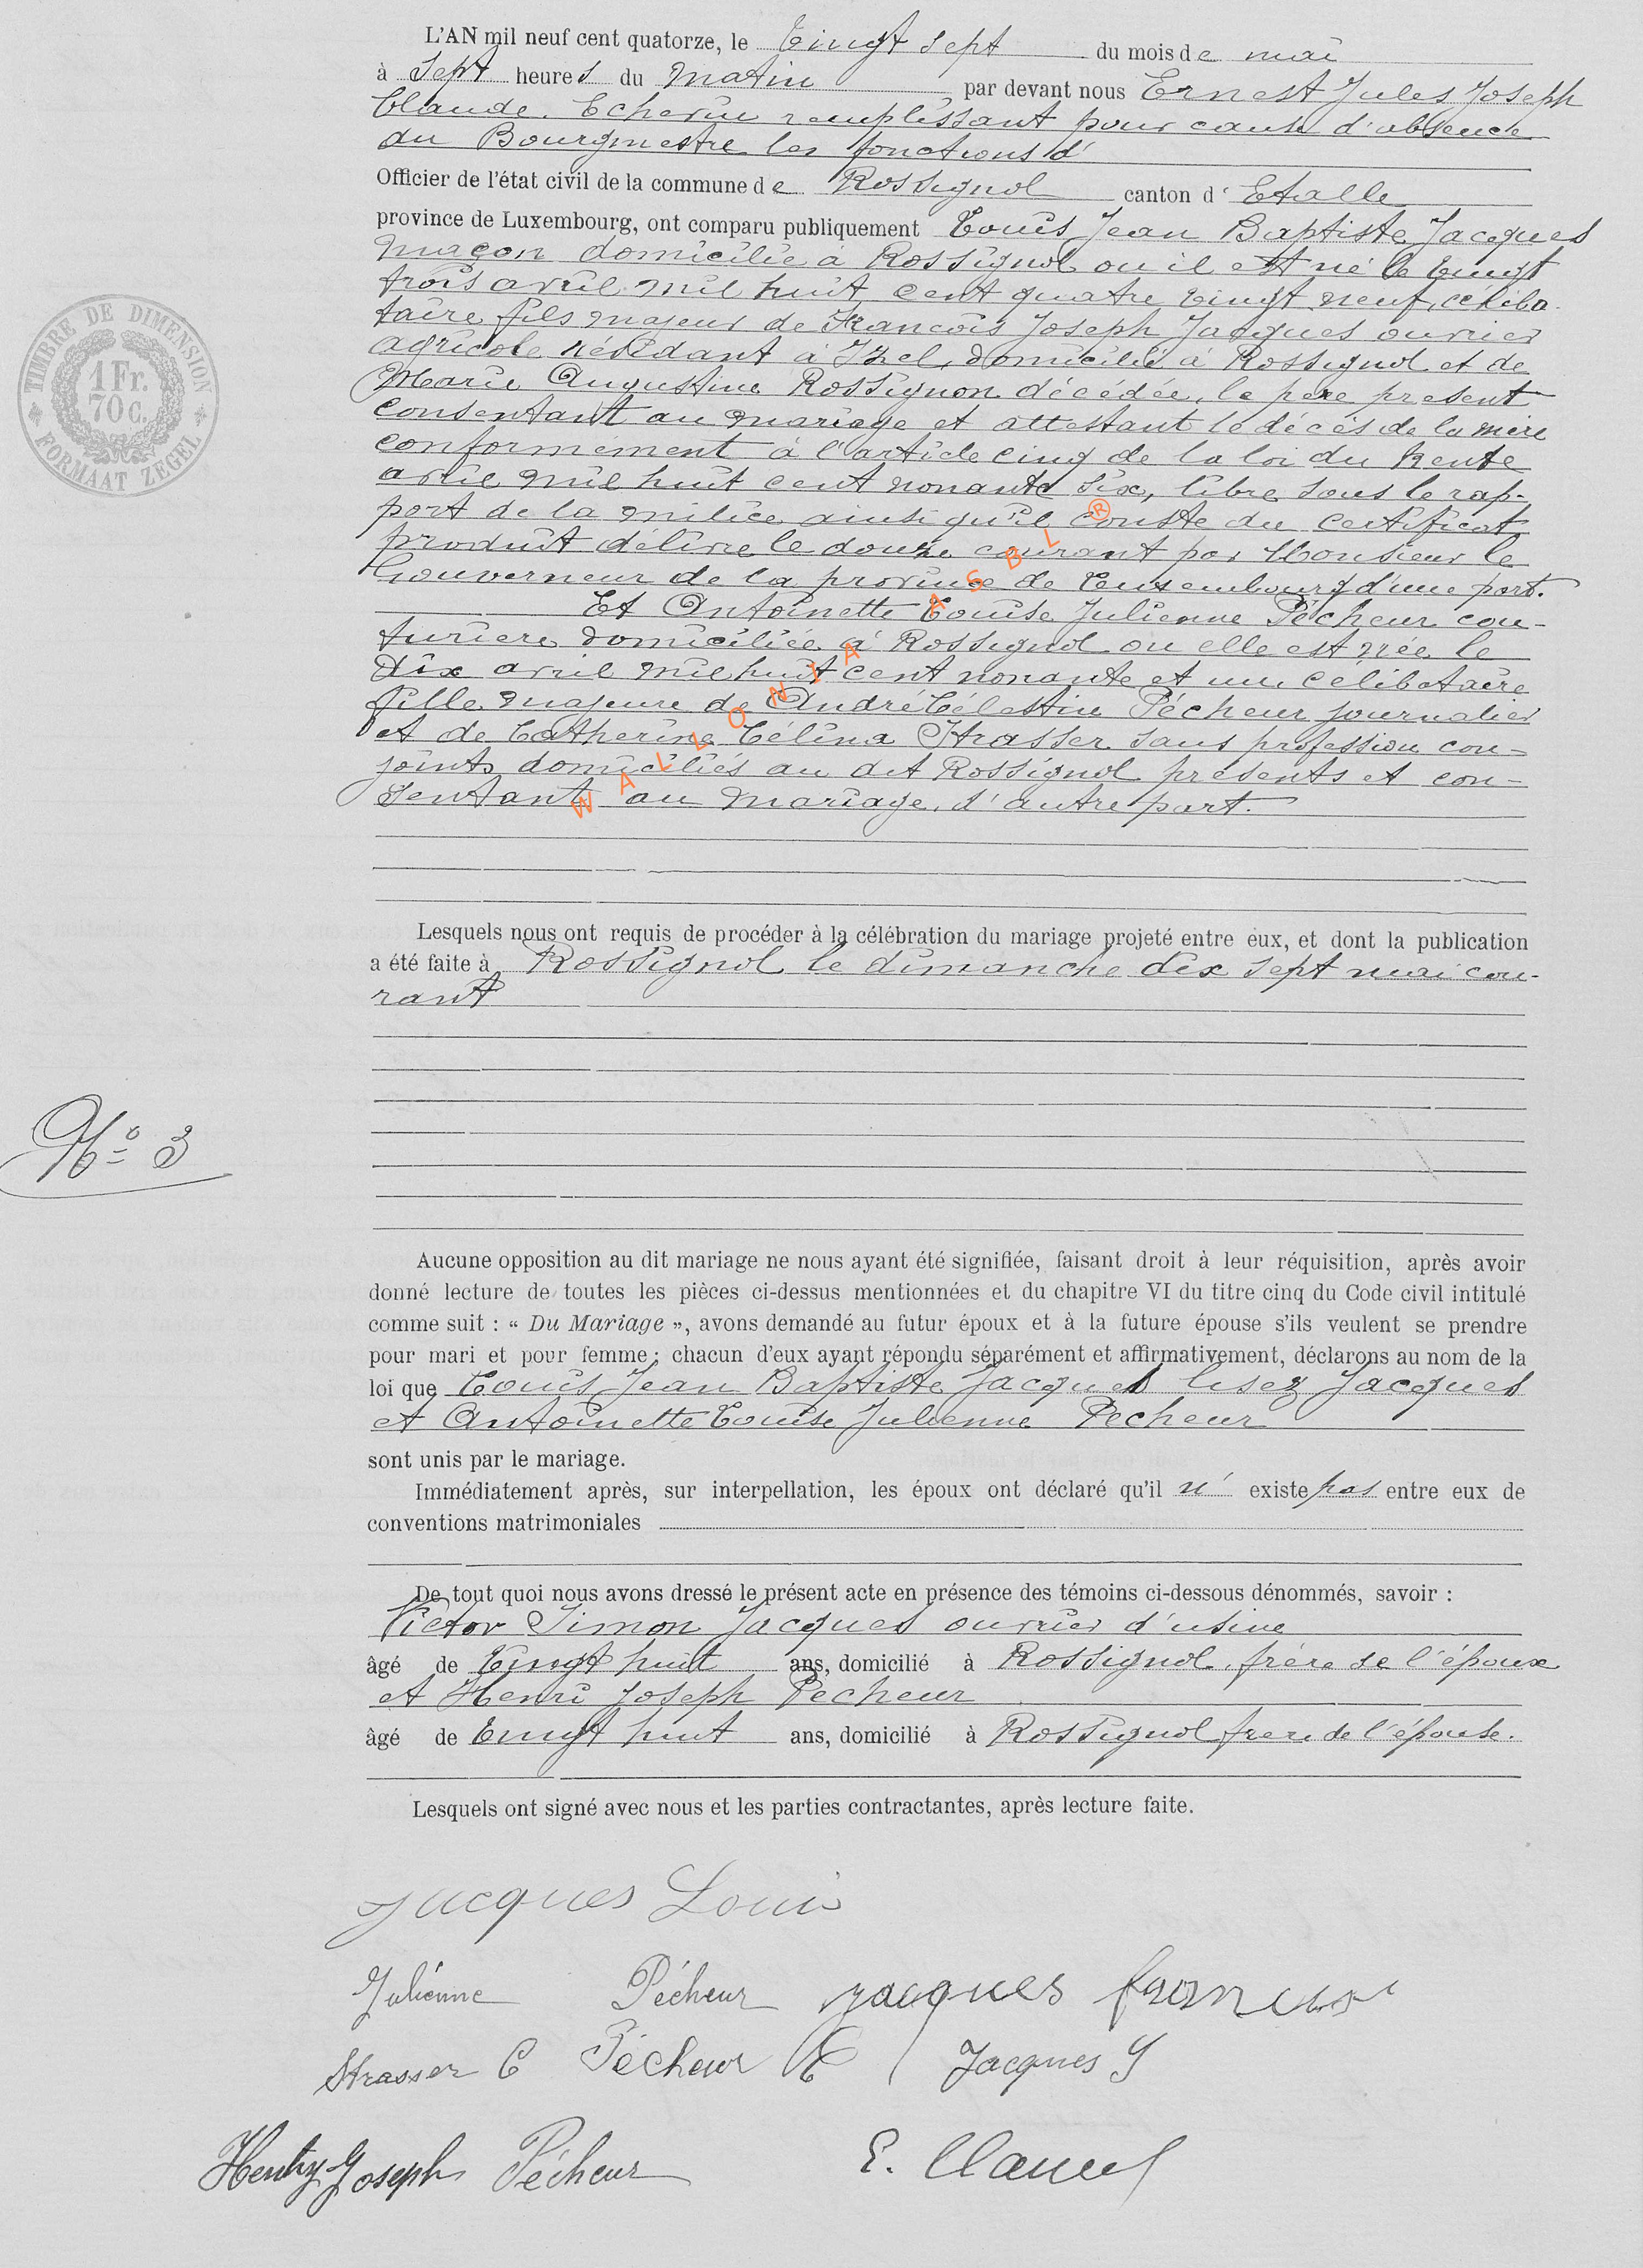 L'AN mil neuf cent quatorze, le Vingt sept du mois de mai
à Sept heures du Matin par devant nous Ernest Jules Joseph
Claude. Echevin remplissant pour cause d'absence
du Bourgmestre les fonctions d'
Officier de l'état civil de la commune de Rossignol canton d' Etalle
province de Luxembourg, ont comparu publiquement Louis Jean Baptiste Jacques
maçon domicilié à Rossignol ou il est né le Vingt
trois avril mil huit cent quatre vingt neuf, céliba-
taire fils majeur de Francois Joseph Jacques ouvrier
agricole résidant à Izel, domicilié à Rossignol et de
Marie Augustine Rossignon décédée, le père présent
consentant au mariage et attestant le décès de la mère
conformément à l'article cinq de la loi du trente
avril mil huit cent nonante six, libre sous le rap-
port de la milice ainsi qu'il conste du certificat
produit délivré le douze courant par Monsieur le
Gouverneur de la province de Luxembourg d'une part.
Et Antoinette Louise Julienne Pécheur cou-
turière domiciliée à Rossignol ou elle est née le
dix avril mil huit cent nonante et un, célibataire
fille majeure de André Célestin Pécheur journalier
et de Catherine Célina Strasser sans profession con-
joints domiciliés au dit Rossignol présents et con-
sentant au mariage, d'autre part.
WALLONIA ASBL ®
TIMBRE DE DIMENSION
1 Fr.
70 C.
FORMAAT ZEGEL
Lesquels nous ont requis de procéder à la célébration du mariage projeté entre eux, et dont la publication
a été faite à Rossignol le dimanche dix sept mai cou-
rant
No 3
Aucune opposition au dit mariage ne nous ayant été signifiée, faisant droit à leur réquisition, après avoir
donné lecture de toutes les pièces ci-dessus mentionnées et du chapitre VI du titre cinq du Code civil intitulé
comme suit : « Du Mariage », avons demandé au futur époux et à la future épouse s'ils veulent se prendre
pour mari et pour femme ; chacun d'eux ayant répondu séparément et affirmativement, déclarons au nom de la
loi que Louis Jean Baptiste Jacques lisez Jacques
et Antoinette Louise Julienne Pecheur
sont unis par le mariage.
Immédiatement après, sur interpellation, les époux ont déclaré qu'il n' existe pas entre eux de
conventions matrimoniales
De tout quoi nous avons dressé le présent acte en présence des témoins ci-dessous dénommés, savoir :
Victor Simon Jacques ouvrier d'usine
âgé de Vingt huit ans, domicilié à Rossignol, frère de l'époux
et Henri Joseph Pecheur
âgé de Vingt huit ans, domicilié à Rossignol frère de l'épouse.
Lesquels ont signé avec nous et les parties contractantes, après lecture faite.
Jacques Louis
Julienne Pécheur Jacques francois
Strasser C Pécheur C Jacques S
Henry Joseph Pécheur E. Claude